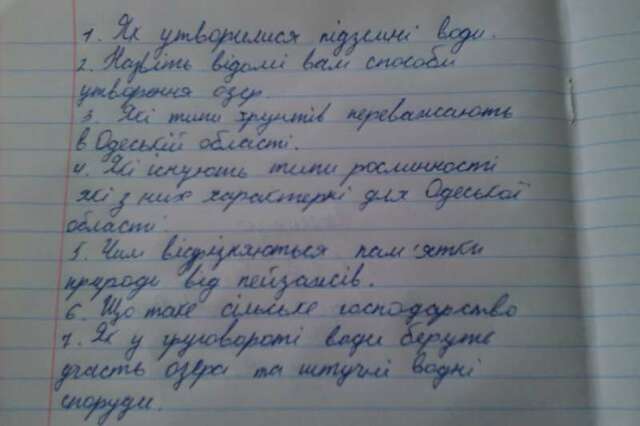 1. Як утворилися підземні води.
2. Назвіть відомі вам способи
утворення озер.
3. Які типи ґрунтів переважають
в Одеській області.
4. Які існують типи рослинності
які з них характерні для Одеської
області.
5. Чим відрізняються пам'ятки
природи від пейзажів.
6. Що таке сільське господарство
7. Як у груговороті води беруть
участь озера та штучні водні
споруди.